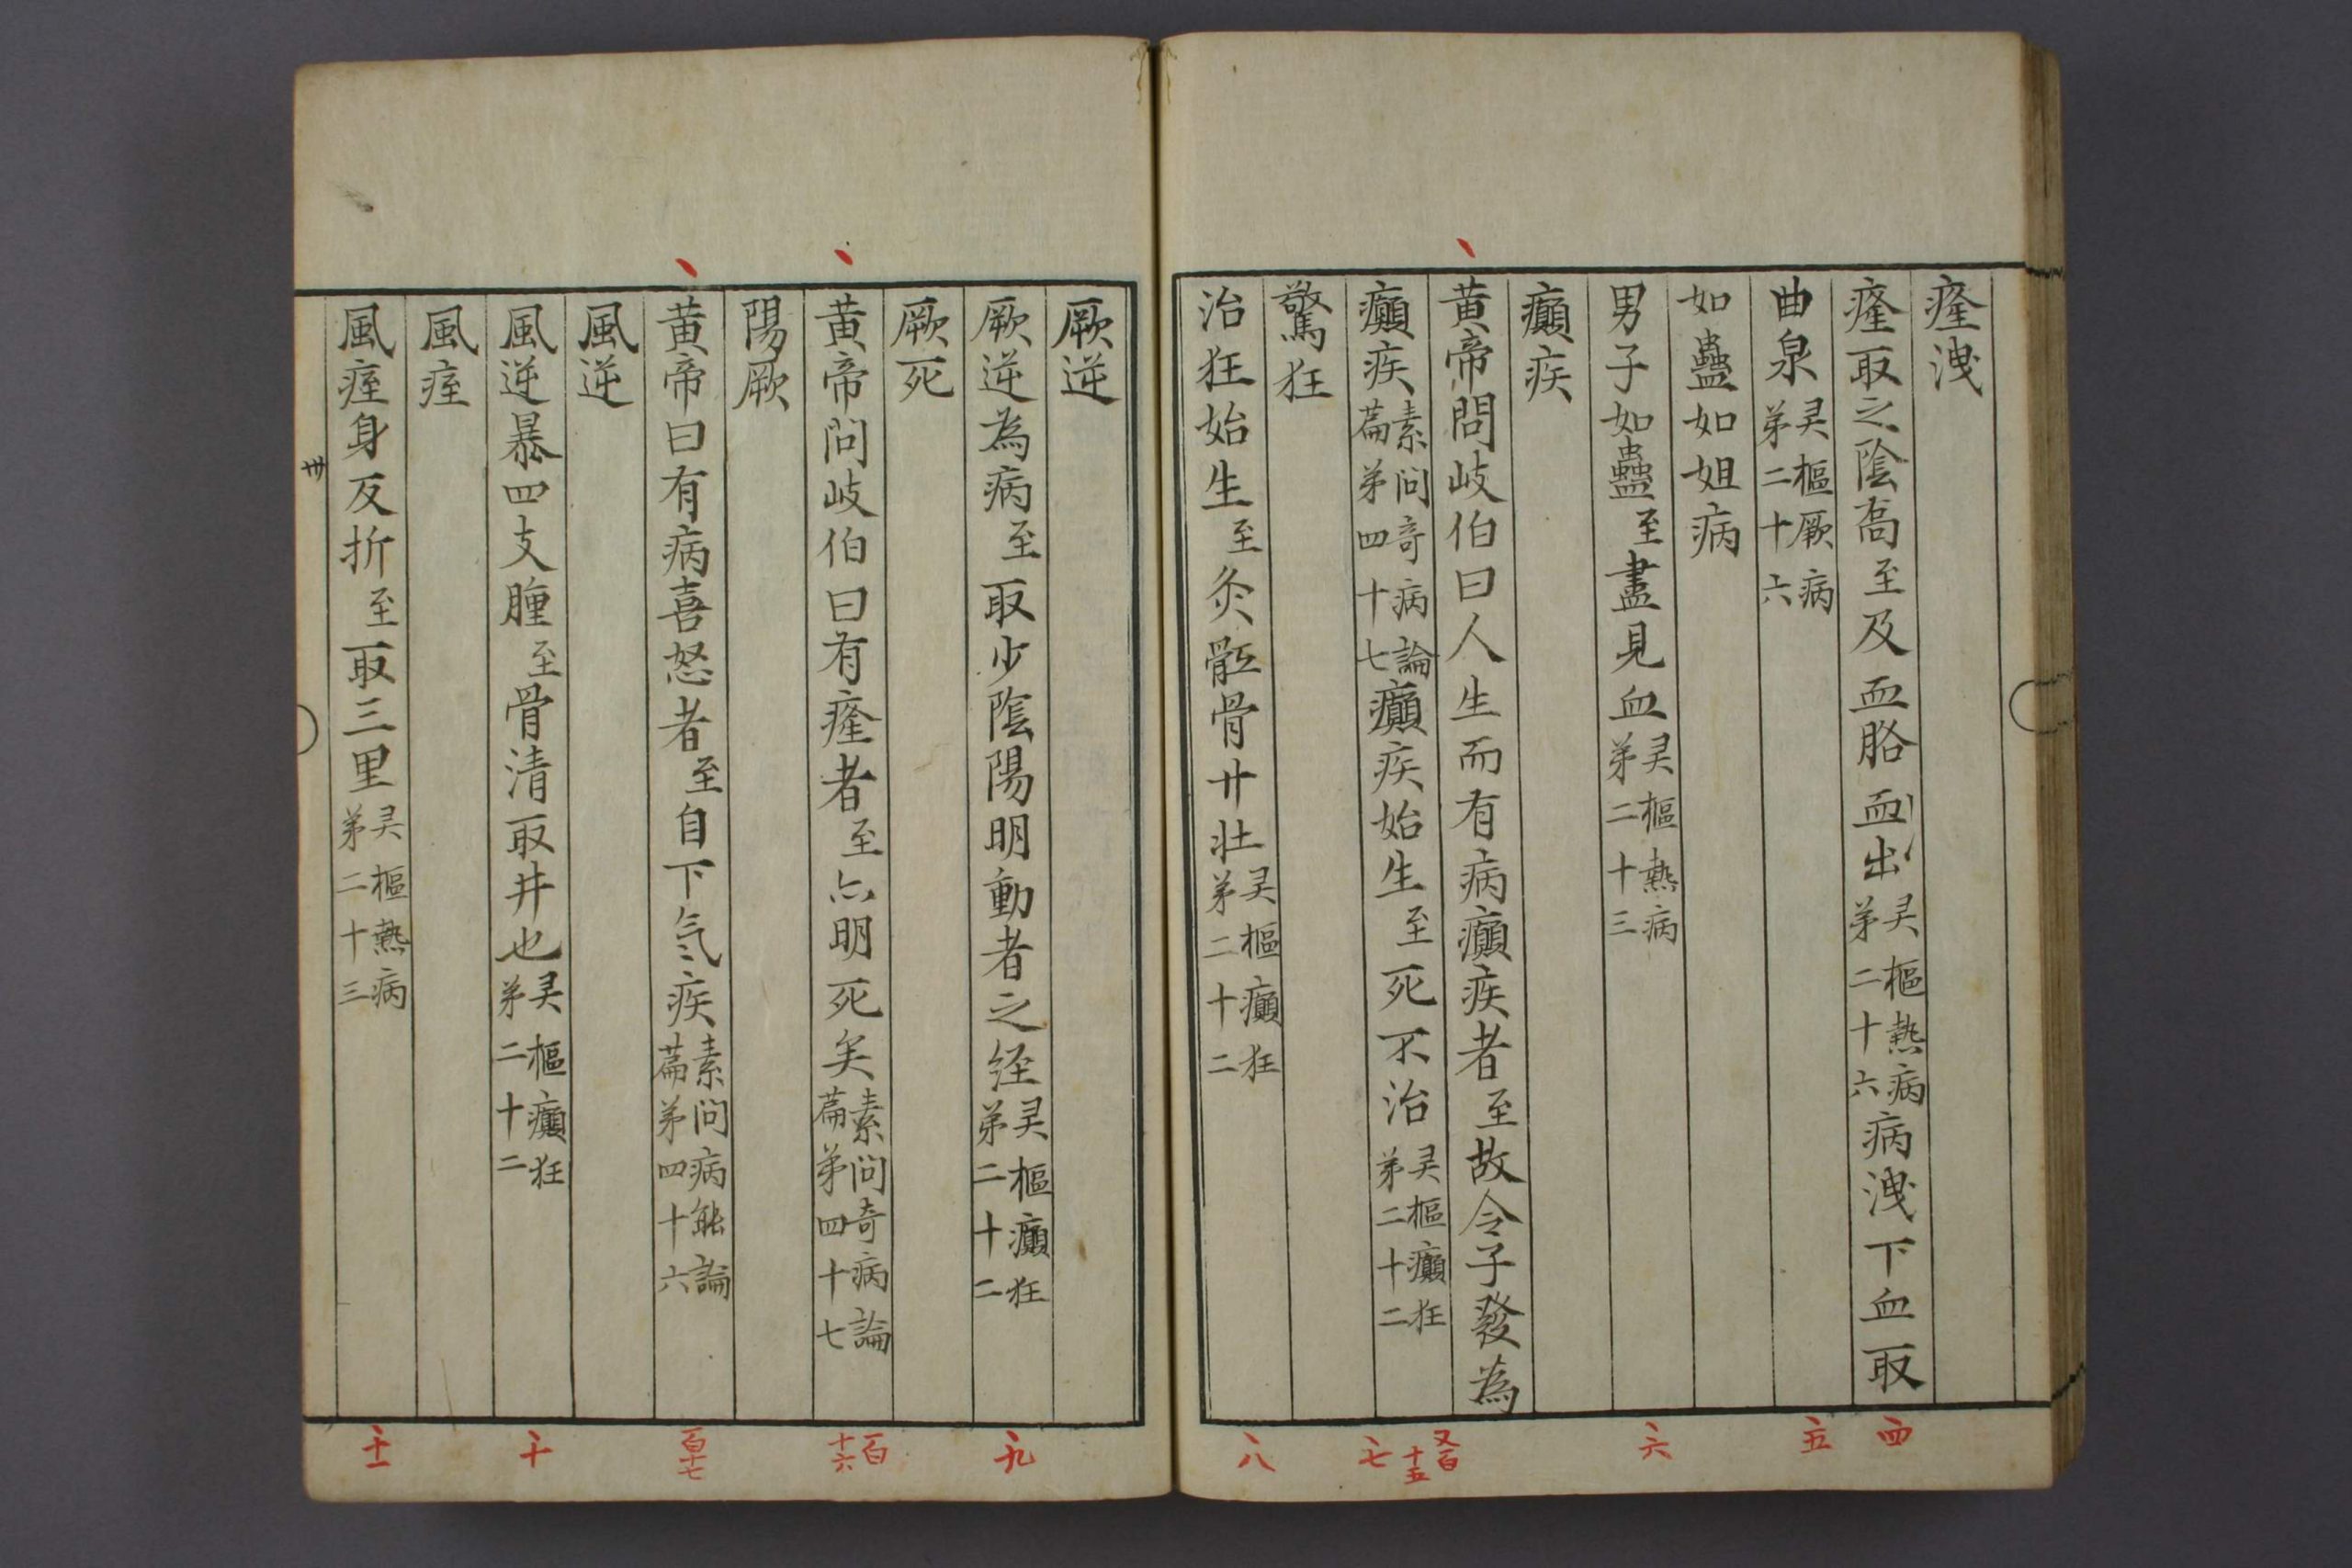 癃洩
癃取之陰喬至及血胳血出灵樞熱病弟二十六病洩下血取
曲泉灵樞厥病弟二十六
如蠱如姐病
男子如蠱至盡見血灵樞熱病弟二十三
癲疾
黄帝問岐伯曰人生而有病癲疾者至故令子發為
癲疾素問奇病論篇弟四十七癲疾始生至死不治灵樞癲狂弟二十二
驚狂
治狂始生至灸骶骨廿壮灵樞癲狂弟二十二
四
五
六
又百十五
七
八
厥逆
厥逆為病至取少陰陽明動者之経灵樞癲狂弟二十二
厥死
黄帝問岐伯曰有癃者至亦明死矣素問奇病論篇弟四十七
陽厥
黄帝曰有病喜怒者至自下氣疾素問病能論篇弟四十六
風逆
風逆暴四支腫至骨清取井也灵樞癲狂弟二十二
風痓
風痓身反折至取三里灵樞熱病弟二十三
卅
九
百十六
百十七
十
十一